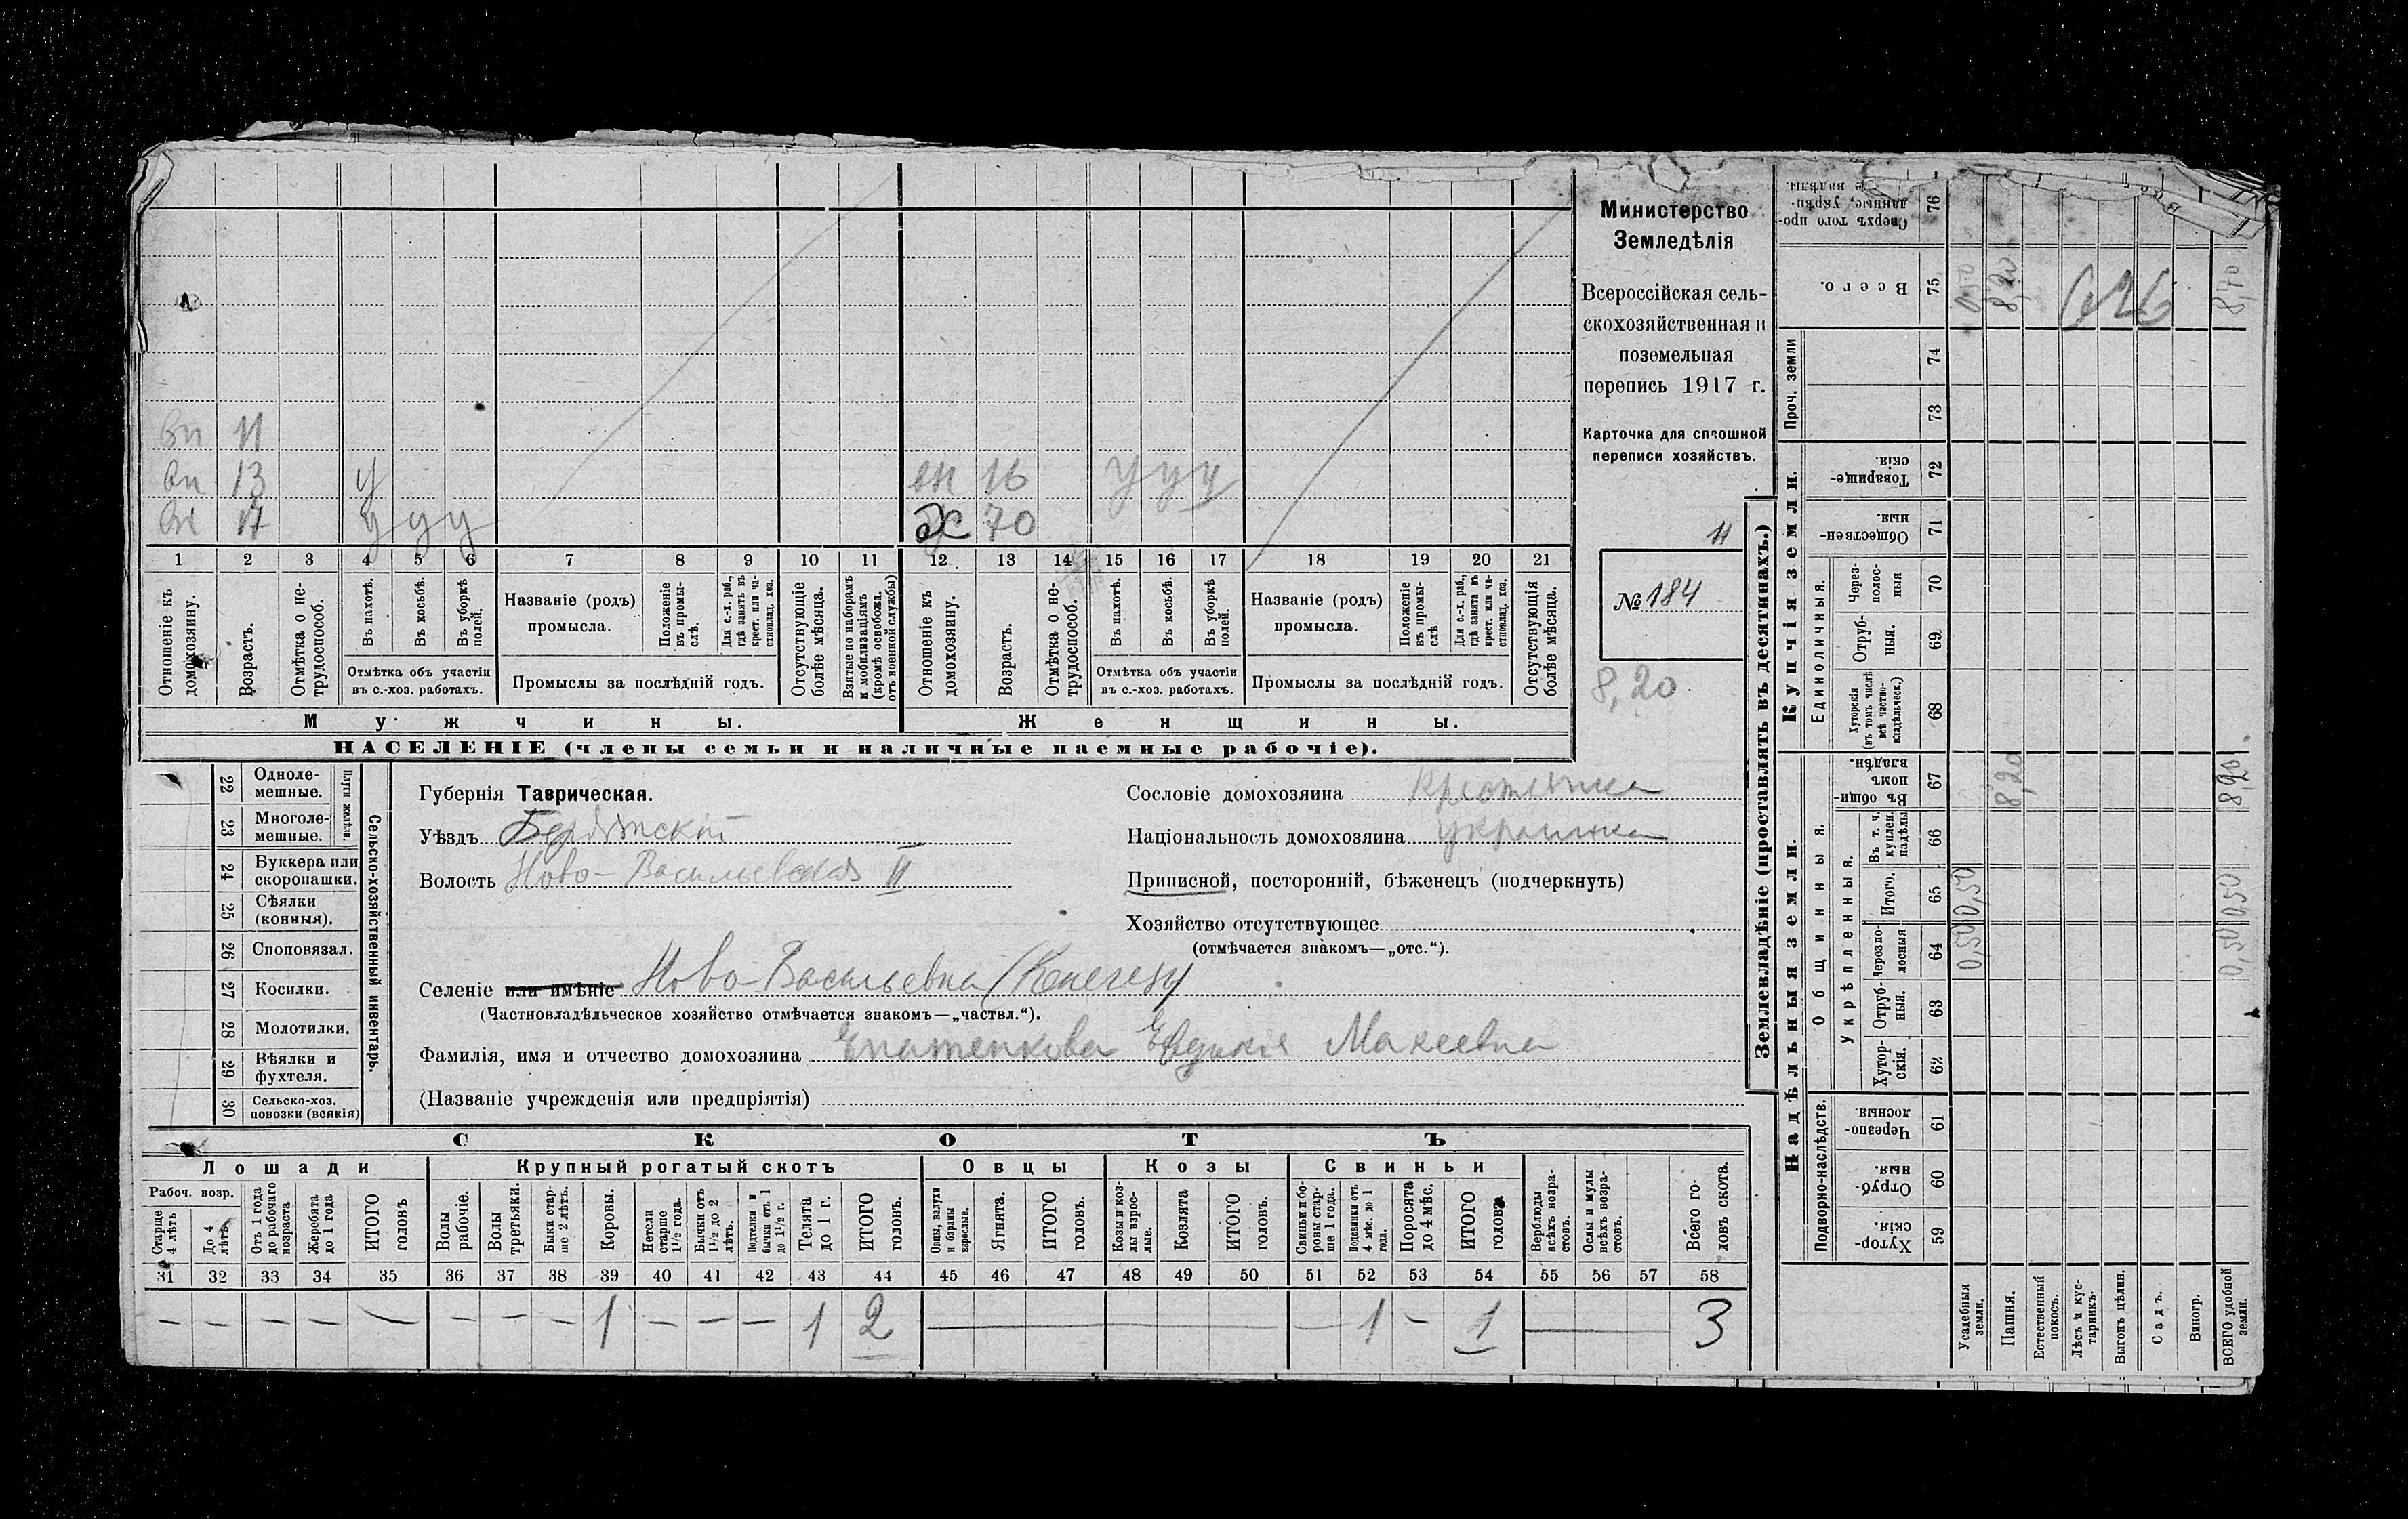 вн 11
вн 13 у
вн 17 у у у
вн 16 у у у
х 70
1 2 3 4 5 6 7 8 9 10 11 12 13 14 15 16 17 18 19 20 21
Отношеніе къ домохозяину.
Возрастъ.
Отмѣтка о не-
трудоспособ.
Въ пахотѣ.
Въ косьбѣ.
Въ уборкѣ полей.
Отмѣтка объ участіи
въ с.-хоз. работахъ.
Названіе (родъ)
промысла.
Положеніе въ промы-
слѣ.
Для с.-х. раб., гдѣ занятъ въ крест. или ча-
стновлад. хоз.
Промыслы за послѣдній годъ.
Отсутствующіе болѣе мѣсяца.
Взятые по наборамъ и мобилизаціямъ (кромѣ освобожд. отъ военной службы)
Отношеніе къ домохозяину.
Возрастъ.
Отмѣтка о не-
трудоспособ.
Въ пахотѣ.
Въ косьбѣ.
Въ уборкѣ полей.
Отмѣтка объ участіи
въ с.-хоз. работахъ.
Названіе (родъ)
промысла.
Положеніе въ промы-
слѣ
Для с.-х. раб., гдѣ занята въ крест. или ча-
стновлад. хоз.
Промыслы за послѣдній годъ.
Отсутствующія болѣе мѣсяца.
Мужчины.
Женщины.
НАСЕЛЕНІЕ (члены семьи и наличные наемные рабочіе).
Министерство
Земледѣлія
Всероссійская сель-
скохозяйственная и
поземельная
перепись 1917 г.
Карточка для сплошной
переписи хозяйствъ.
11
№ 184
8,20
22 Одноле-
мешные.
23 Многоле-
мешные.
Плуги желѣзн.
24 Буккера или
скоропашки.
25 Сѣялки
(конныя).
26 Сноповязал.
27 Косилки.
28 Молотилки.
29 Вѣялки и
фухтеля.
30 Сельско-хоз.
повозки (всякія)
Сельско-хозяйственный инвентарь.
Губернія Таврическая.
Уѣздъ Бердянскій
Волость Ново-Васильевская II
Сословіе домохозяина крестьянка
Національность домохозяина украинка
Приписной, посторонній, бѣженецъ (подчеркнуть)
Хозяйство отсутствующее
(отмѣчается знакомъ—„отс.“).
Селеніе или имѣніе Ново-Васильевка (Кенегезъ)
(Частновладѣльческое хозяйство отмѣчается знакомъ—„частвл.“).
Фамилія, имя и отчество домохозяина Игнатенкова Евдокія Макеевна
(Названіе учрежденія или предпріятія)
СКОТЪ
Лошади
Крупный рогатый скотъ
Овцы
Козы
Свиньи
Рабоч. возр.
Старше 4 лѣтъ
До 4 лѣтъ.
Отъ 1 года до рабочаго возраста
Жеребята до 1 года
ИТОГО головъ
Волы рабочіе.
Волы третьяки.
Быки стар-
ше 2 лѣтъ.
Коровы.
Нетели старше 1½ года.
Бычки отъ 1½ до 2 лѣтъ.
Подтелки и бычки отъ 1 до 1½ г.
Телята до 1 г.
ИТОГО головъ.
Овцы, валухи и бараны взрослые.
Ягнята.
ИТОГО головъ.
Козы и коз-
лы взрос-
лые.
Козлята
ИТОГО головъ.
Свиньи и бо-
ровы стар-
ше 1 года.
Подсвинки отъ 4 мѣс. до 1 года.
Поросята до 4 мѣс.
ИТОГО головъ.
Верблюды всѣхъ возра-
стовъ.
Ослы и мулы всѣхъ возра-
стовъ.
Всего го-
ловъ скота.
31 32 33 34 35 36 37 38 39 40 41 42 43 44 45 46 47 48 49 50 51 52 53 54 55 56 57 58
— — — — — — — — 1 — — — 1 2 — — 1 — 1 — 3
Землевладѣніе (проставлять въ десятинахъ.)
Надѣльныя земли.
Купчія земли.
Проч. земли
Подворно-наслѣдств.
Общинныя.
Укрѣпленныя.
Единоличныя.
Сверхъ того про-
данные, укрѣп-
ле надѣлы. 76
Всего. 75
74
73
Товарище-
скія. 72
Обществен-
ныя. 71
Через-
полос-
ныя 70
Отруб-
ныя. 69
Хуторскія (въ томъ числѣ всѣ частно-
владѣльческ.) 68
Въ общин-
номъ владѣн. 67
Въ т. ч. куплен. надѣлы 66
Итого. 65
Черезпо-
лосныя 64
Отруб-
ныя. 63
Хутор-
скія. 62
Черезпо-
лосныя. 61
Отруб-
ныя. 60
Хутор-
скія. 59
Усадебныя земли. 0,50 0,50 0,50
Пашня. 8,20 8,20
Естественный покосъ.
Лѣсъ и кус-
тарникъ.
Выгонъ цѣлин.
Садъ.
Виногр.
ВСЕГО удобной земли. 0,50 0,50 8,20 8,70